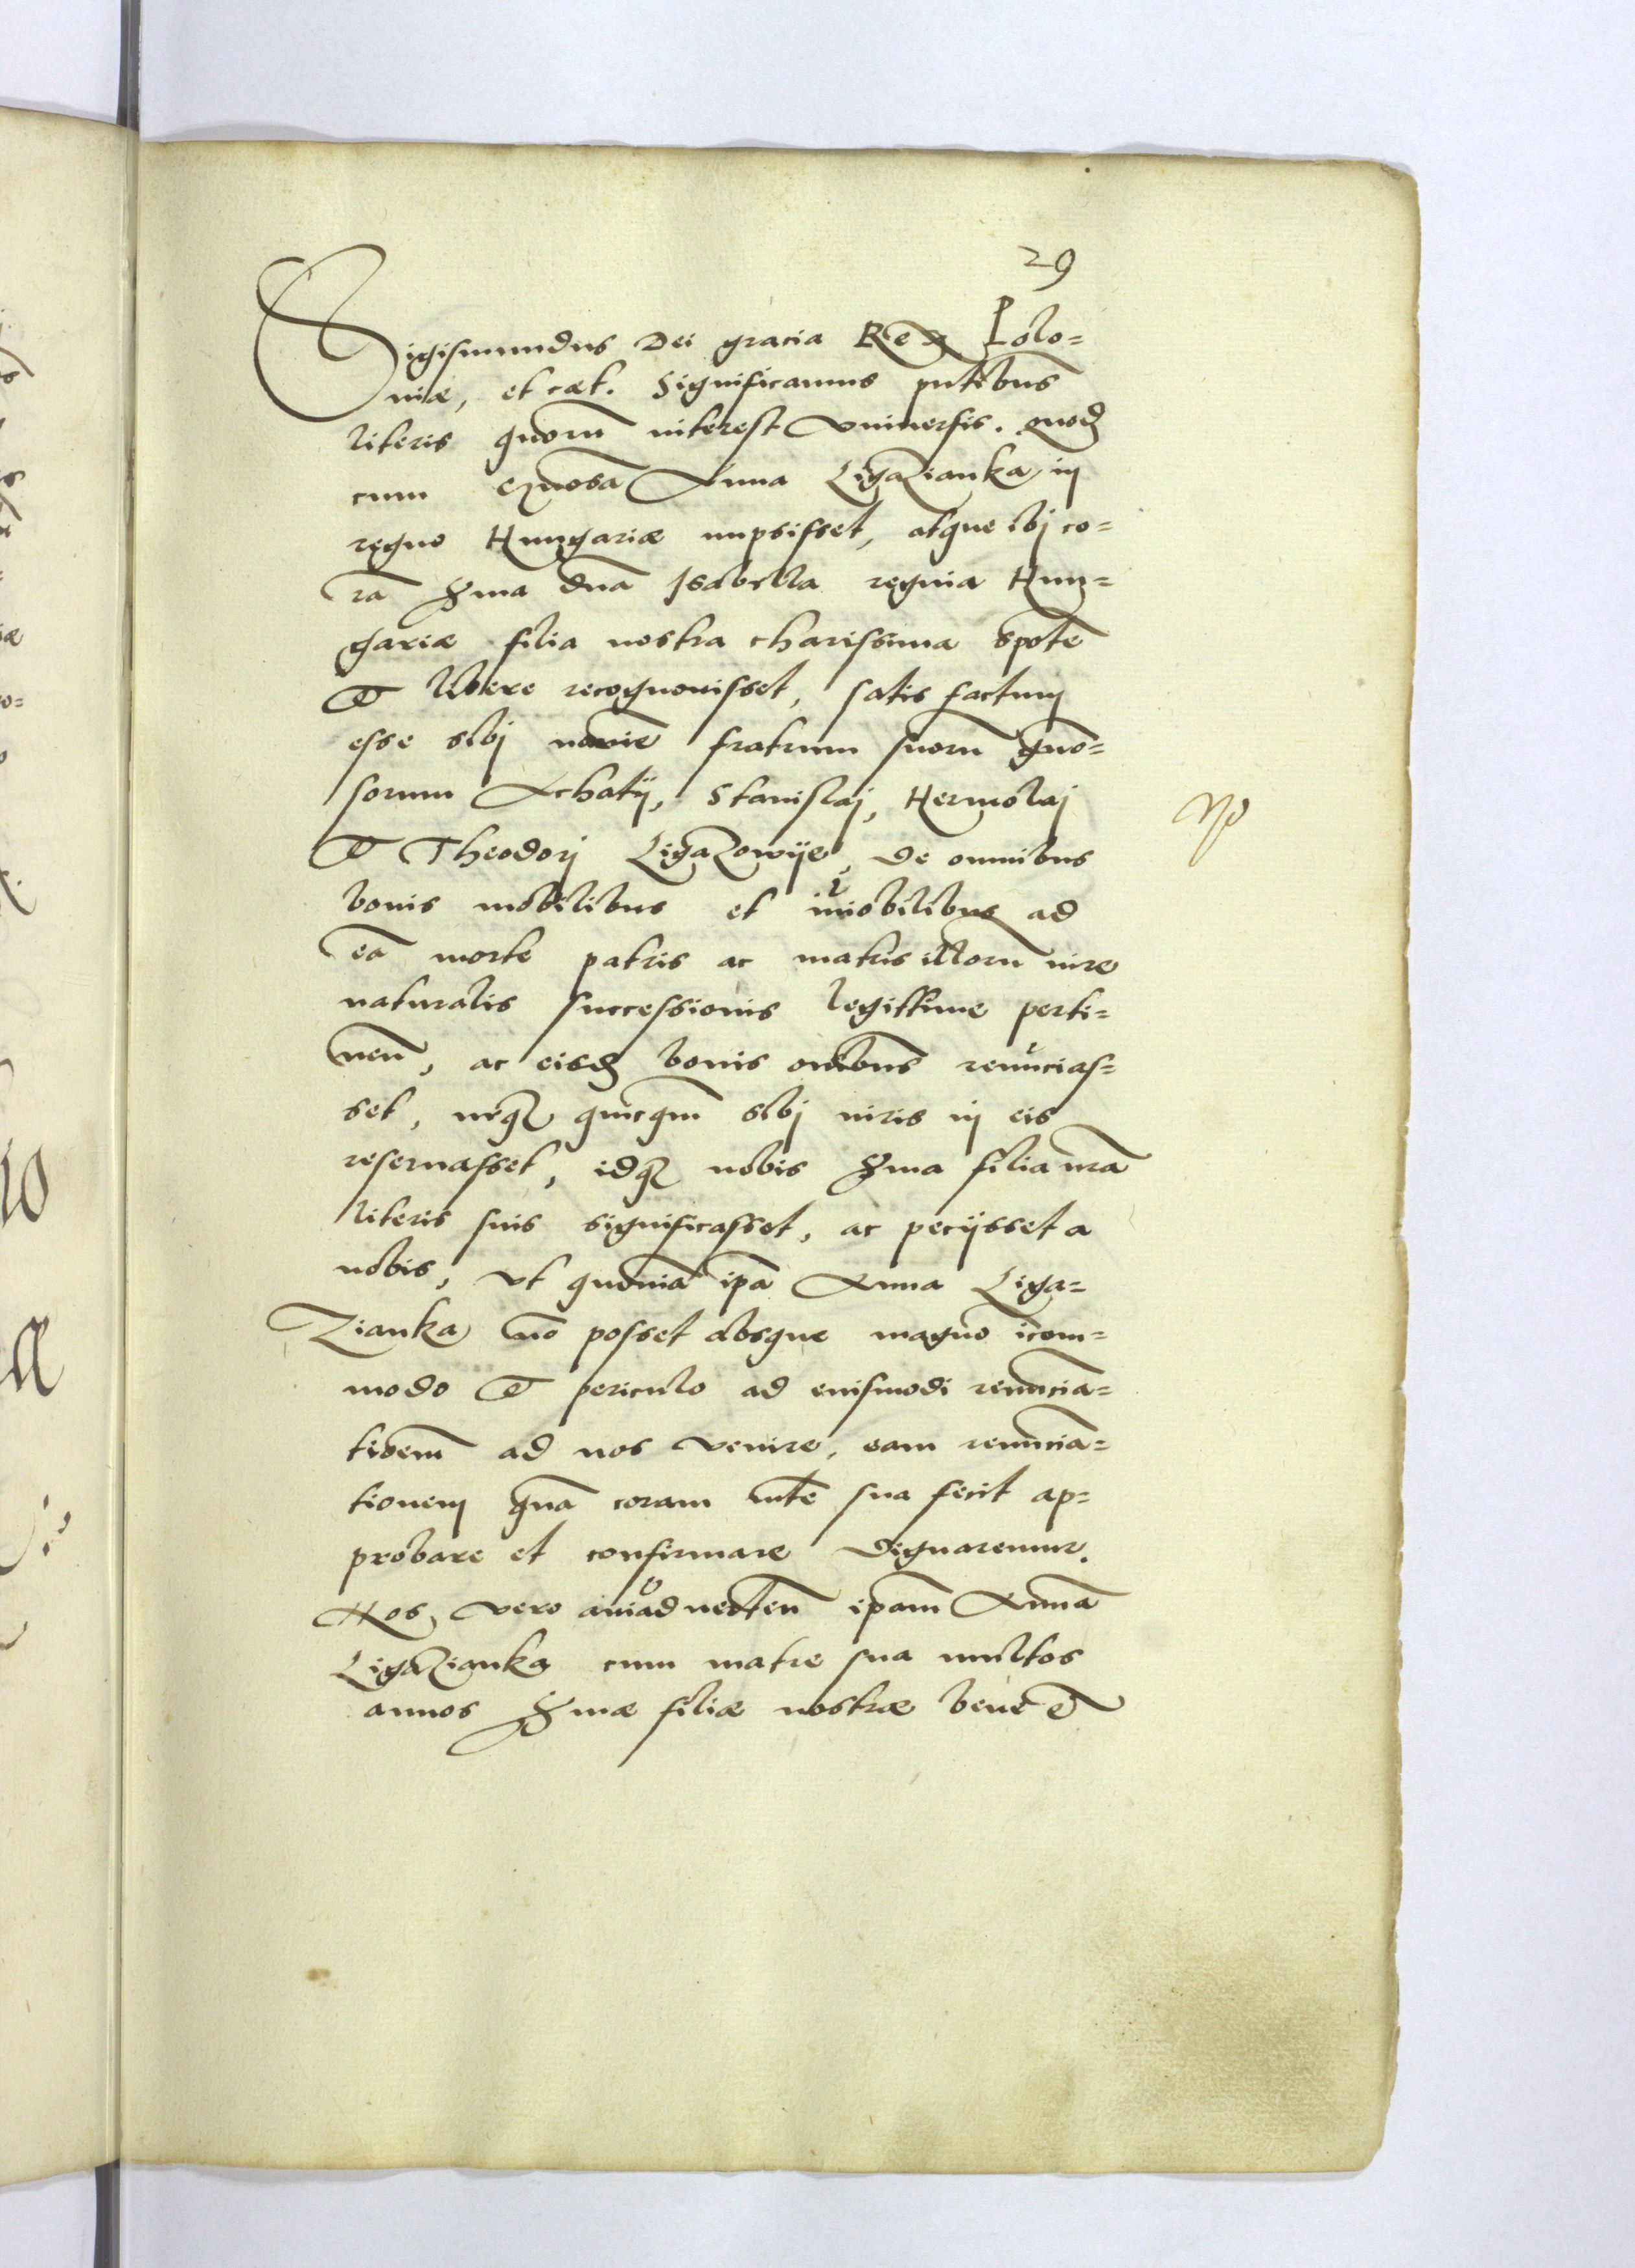 29
Sigismundus Dei gracia Rex Polo=
niæ, et cæt. Significamus pñtibus
literis quorũ interest vniuersis. quod
cum gñosa Anna Ligęzianka in
regno Hungariæ nupsisset, atque ibj co=
rã Sr̃ma dña Isabella regina Hun=
gariæ filia nostra charissima spõte
et libere recognouisset, satis factum
esse sibj noĩe fratrum suorũ gño=
sorum Achatij, Stanislaj, Hermolaj
et Theodorj Ligęzowije, de omnibus
bonis mobilibus et imobilibus ad
eã morte patris ac matris illorũ iure
naturalis successionis legittime perti=
neñ, ac eisdẽ bonis om̃ibus renũcias=
set, neqʒ quicqm̃ sibj iuris in eis
reseruasset, idqʒ nobis Sr̃ma filia nr̃a
literis suis significasset, ac pecijsset a
nobis, vt quoniã ip̃a Anna Liga=
zianka nõ posset absque magno icom=
modo et periculo ad euismodi renũcia=
tioem̃ ad nos venire, eam renũcia=
tionem quã coram mt̃e sua fecit ap=
probare et confirmare dignaremur.
Nos vero aniaduerteñ ip̃am Annã
Ligęzianka cum matre sua multos
annos Sr̃mæ filiæ nostræ bene et